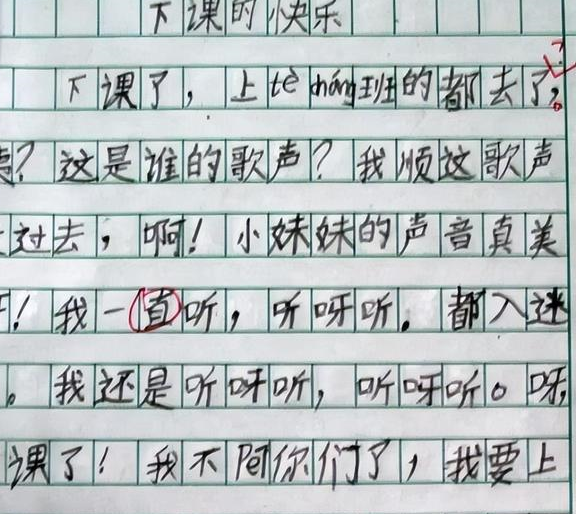 下课的快乐
下课了，上tè cháng班的都去了。
？这是谁的歌声？我顺这歌声
过去，啊！小妹妹的声音真美
！我一直听，听呀听。都入迷
。我还是听呀听，听呀听。呀，
课了！我不péi你们了，我要上